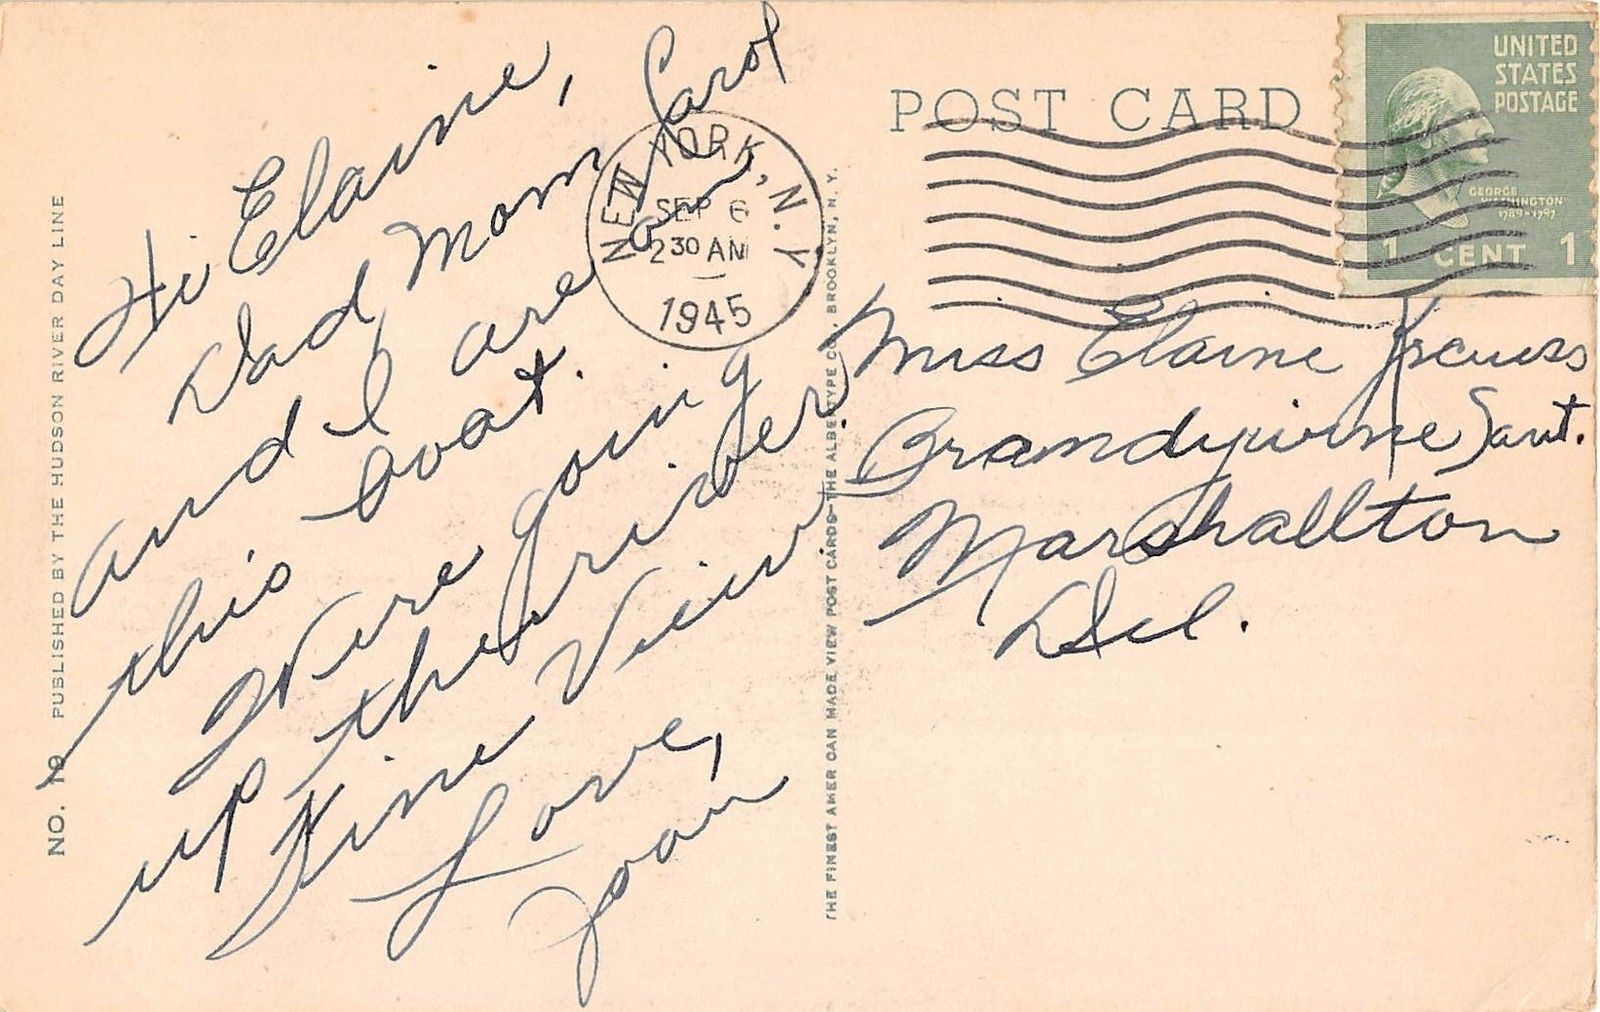 Hi Elaine,
Dad Mom Carol
and I are on
this boat.
Were going
up the river
Fine View.
Love,
Joan
NO. 19 PUBLISHED BY THE HUDSON RIVER DAY LINE
NEW YORK, N.Y.
SEP 6
2 30 AM
1945
THE FINEST AMERICAN MADE VIEW POST CARDS-THE ALBERTYPE CO., BROOKLYN, N. Y.
POST CARD
UNITED
STATES
POSTAGE
GEORGE
WASHINGTON
1789-1797
1 CENT 1
Miss Elaine
Brandywine Sant.
Marshallton
Del.